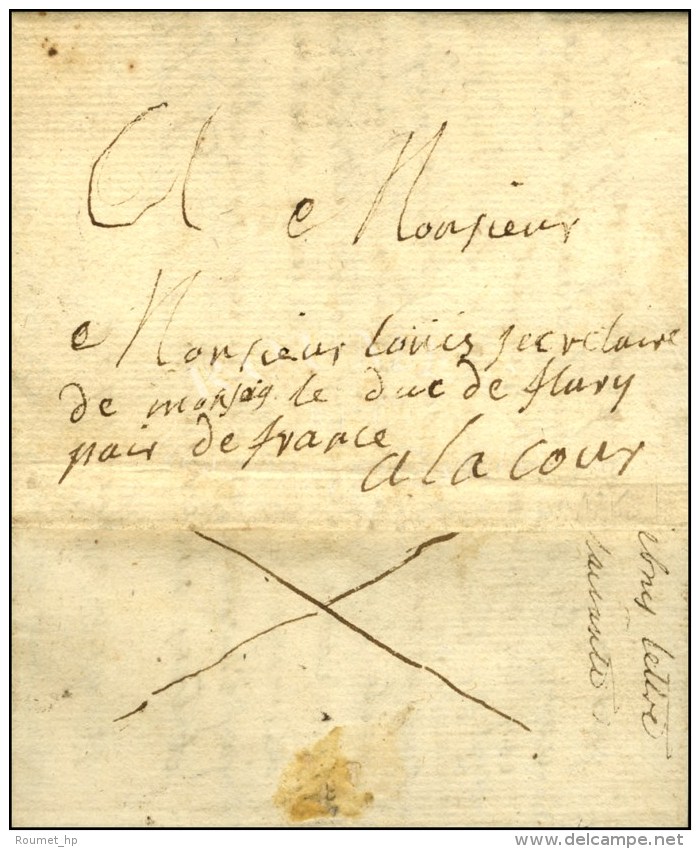 A Monsieur
Monsieur louis secretaire
de monseig le duc de flury
pair de france
a la cour
lettre
Roumet_hp
© delcampe.net